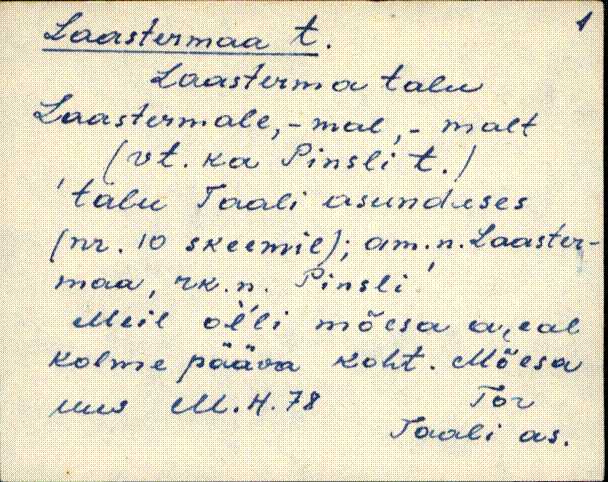 1
Laastermaa t.
Laasterma talu
Laastermale, -mal, - malt
(vt. ka Pinsli t.)
'talu Taali asunduses
(nr. 10 skeemil); am.n. Laaster-
maa, rk.n. Pinsli'
Meil olli mõtsa
kolme pääva koht. Mõtsa
M.H. 78 Tor
Taali as.